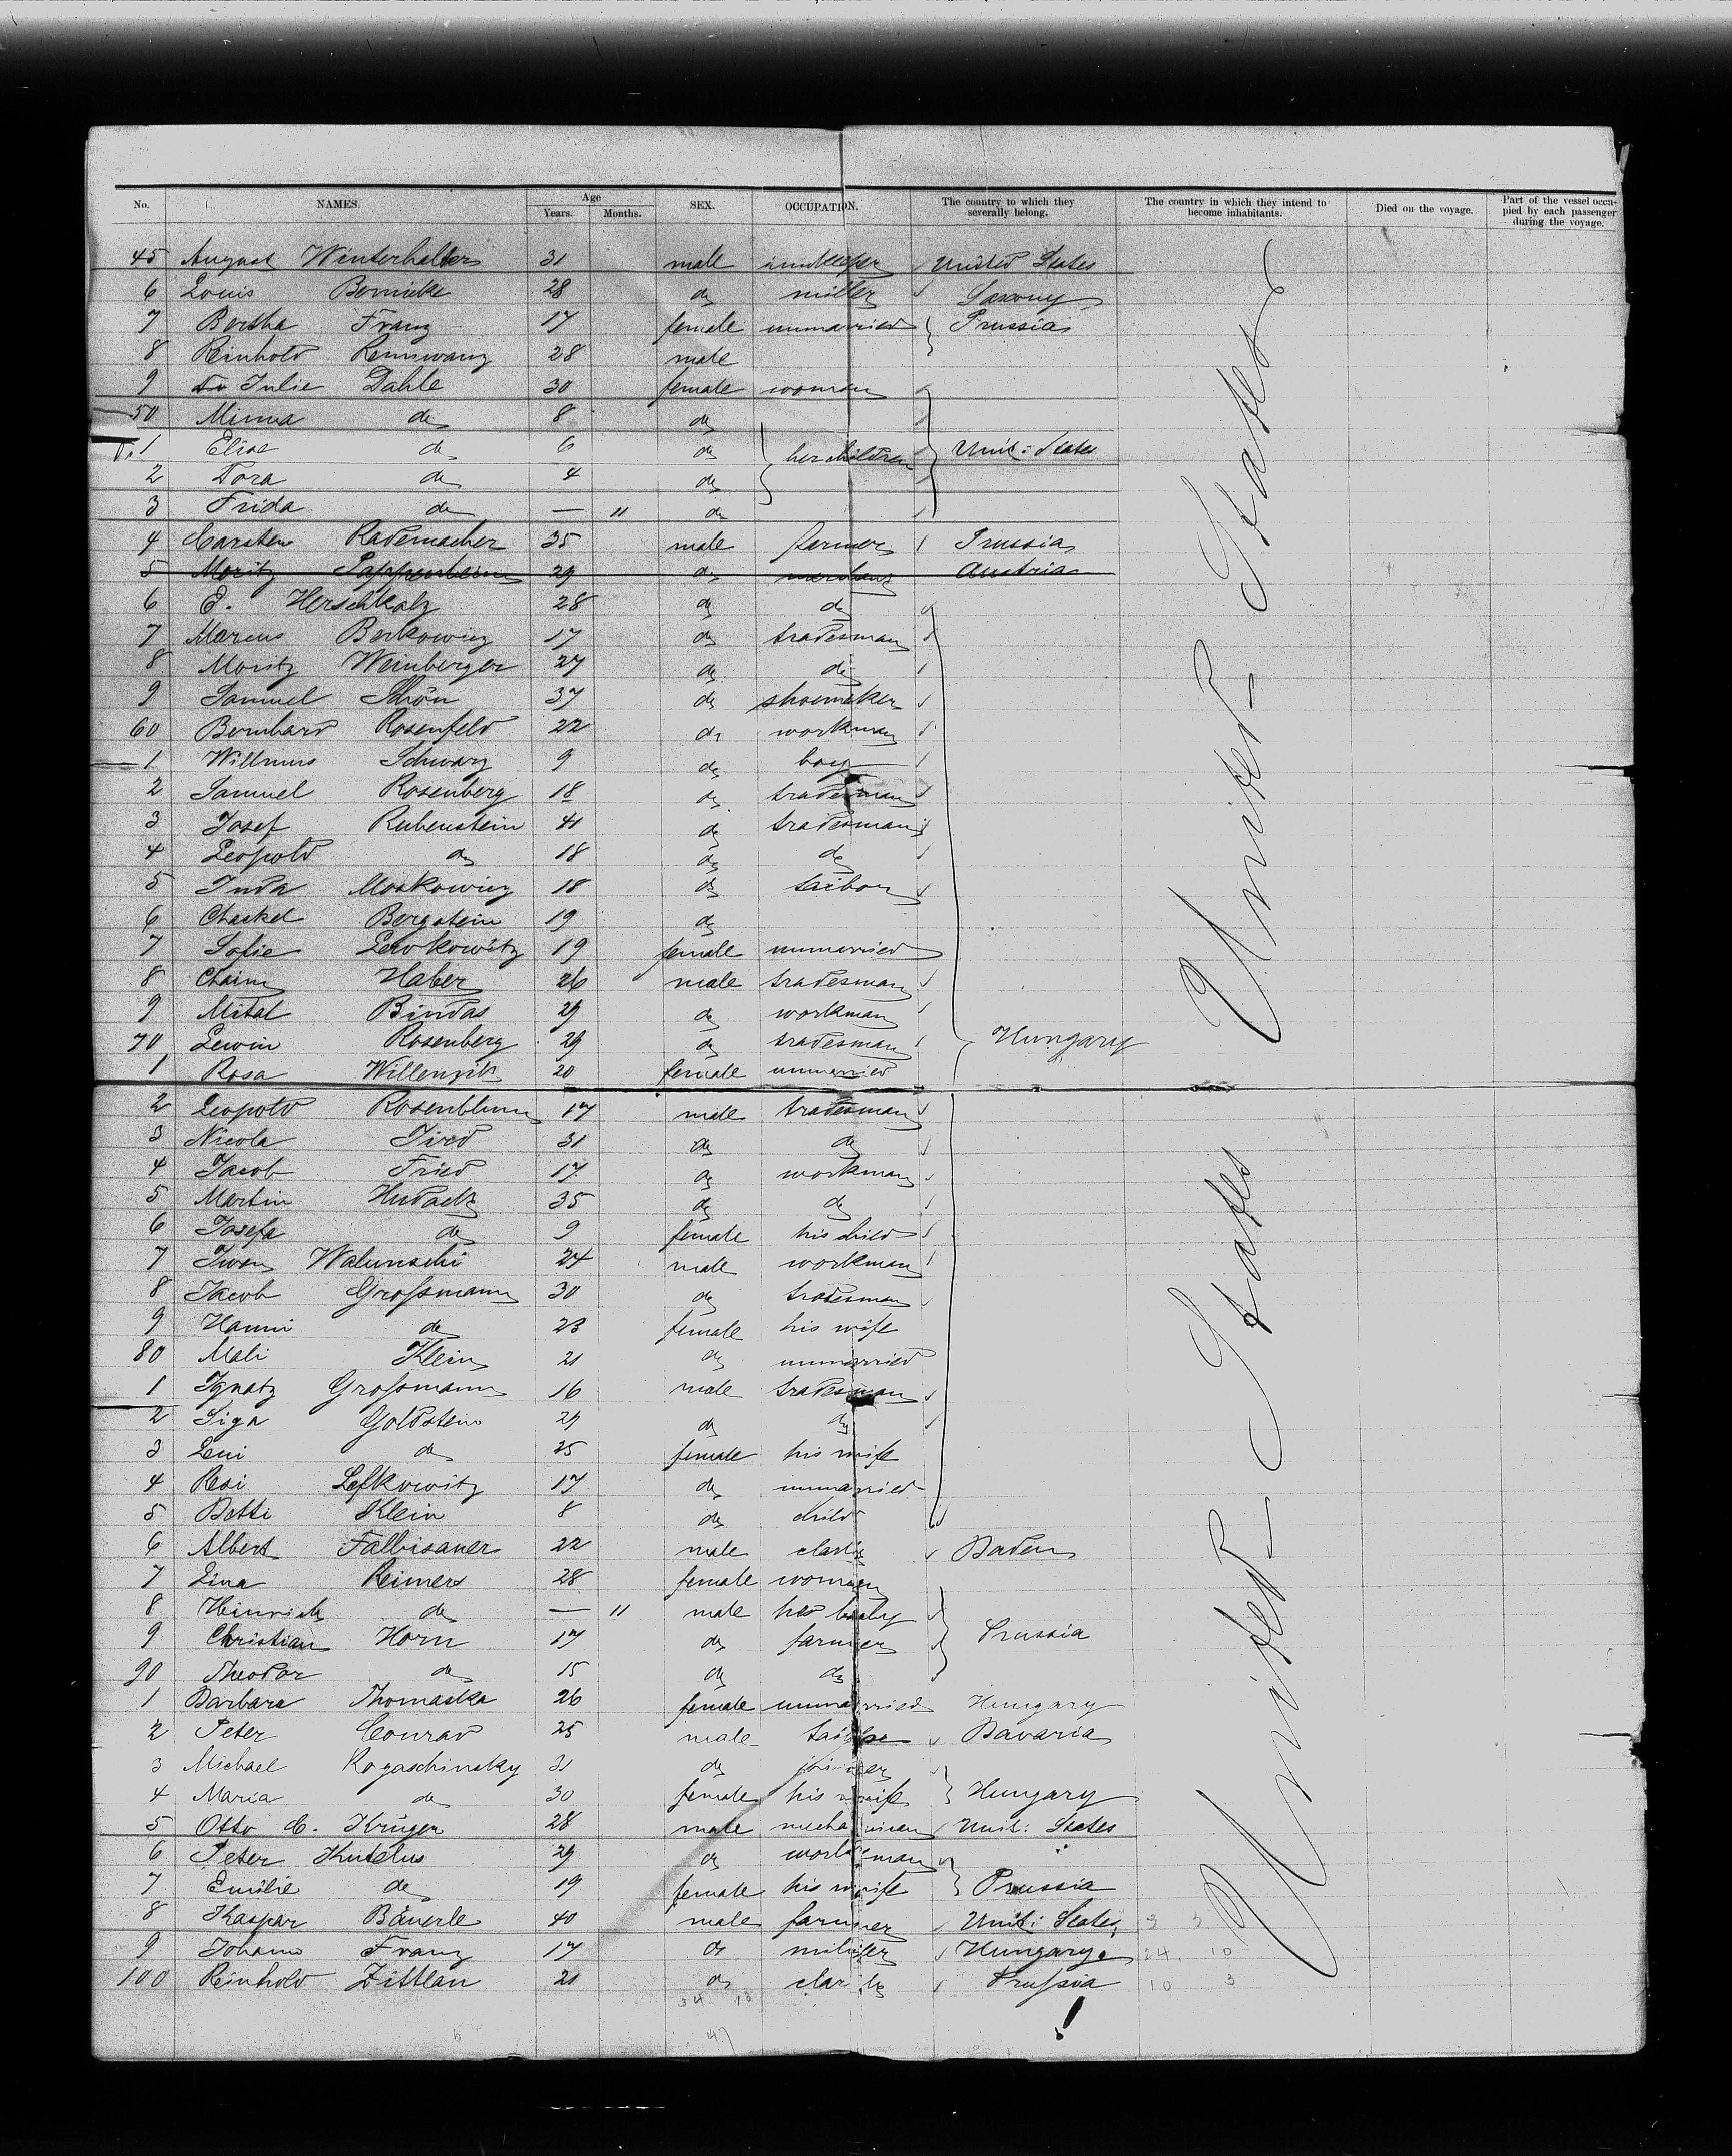 No. NAMES. Age Years. Months. SEX. OCCUPATION. The country to which they severally belong. The country in which they intend to become inhabitants. Died on the voyage. Part of the vessel occupied by each passenger during the voyage.
45 August Winterhalter 31 male innkeeper United States
6 Louis Bernicke 28 do miller Saxony
7 Bertha Franz 17 female unmarried Prussia
8 Reinhold 28 male
9 Julie Dahle 30 female woman
50 Minna do 8 do
1 Elise do 6 do her children Unit: States
2 Dora do 4 do
3 Frida do — 11 do
4 Carsten Rademacher 35 male farmer Prussia
5 Moritz Pappenheim 29 do merchant Austria
6 E. Herschkatz 28 do do
7 Marcus Berkowicz 17 do tradesman
8 Moritz Weinberger 27 do do
9 Samuel Schön 37 do shoemaker
60 Bernhard Rosenfeld 22 do workman
1 Schwarz 9 do boy
2 Samuel Rosenberg 18 do tradesman
3 Josef Rubenstein 41 do tradesman
4 Leopold do 18 do do
5 Juda Moskowicz 18 do
6 Chaskel Bergstein 19 do
7 Sofie Lewkowitz 19 female unmarried
8 Chaim Haber 26 male tradesman
9 Mital Bindas 29 do workman
70 Lewin Rosenberg 29 do tradesman Hungary
1 Rosa Willenzik 20 female unmarried
2 Leopold Rosenblum 17 male tradesman
3 Nicola 31 do do
4 Jacob Fried 17 do workman
5 Martin Hudack 35 do do
6 Josefa do 9 female his child
7 Iwan Walunschi 24 male workman
8 Jacob Großmann 30 do tradesman
9 Hanni do 23 female his wife
80 Mali Klein 21 do unmarried
1 Ignatz Großmann 16 male tradesman
2 Siga Goldstein 29 do do
3 Leni do 25 female his wife
4 Resi Lefkowitz 17 do unmarried
5 Betti Klein 8 do child
6 Albert Falbisaner 22 male Baden
7 Lina Reimers 28 female woman
8 Heinrich do — 11 male her baby
9 Christian Horn 17 do farmer Prussia
90 Theodor do 15 do do
1 Barbara Thomaska 26 female unmarried Hungary
2 Peter Conrad 25 male Bavaria
3 Michael Rogaschinsky 31 do
4 Maria do 30 female his wife Hungary
5 Otto C. Krüger 28 male mechanican Unit: States
6 Peter Kutelus 29 do workman
7 Emilie do 19 female his wife Prussia
8 Kaspar Bäuerle 40 male farmer Unit: States
9 Johann Franz 17 do Hungary 24. 10
100 Reinhold Zittlau 21 do Prußia 10 3
34 13
47
United States
United States